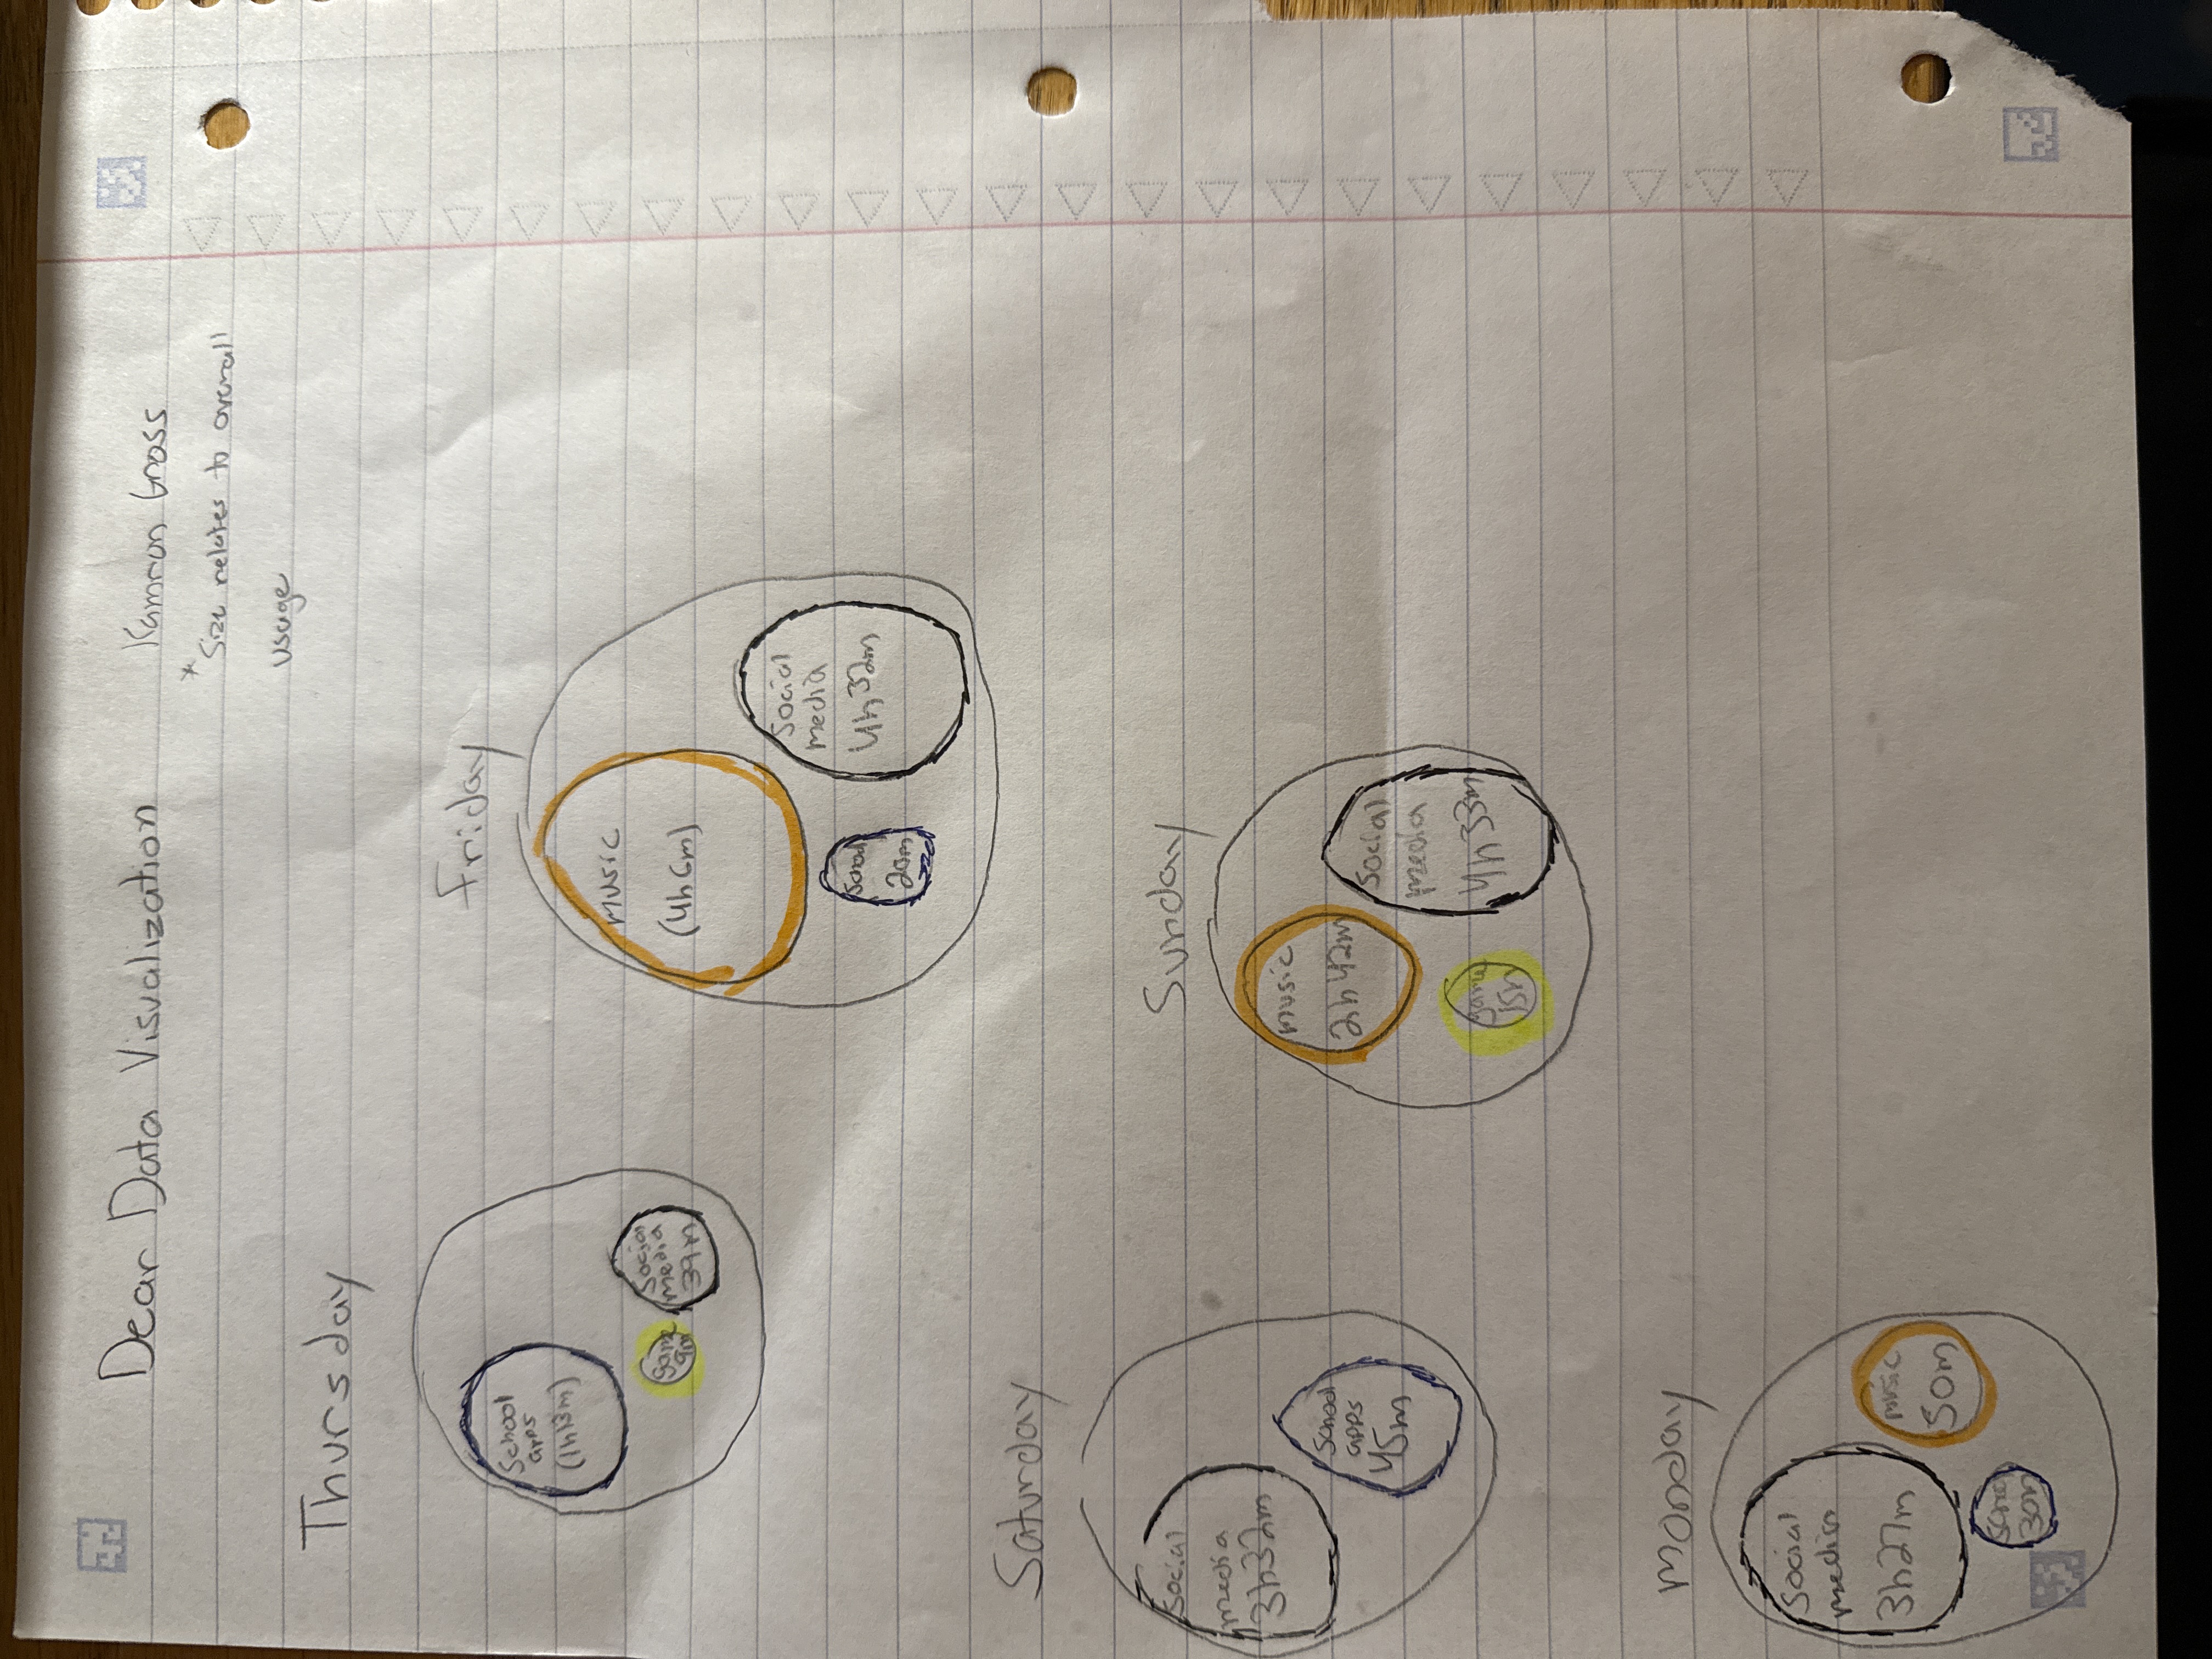 Dear Data Visualization
Kamron Gross
*Size relates to overall
usage
Thursday
School
apps
(1h13m)
game
9m
Social
media
39m
Friday
music
(4h6m)
Social
media
4h32m
School
20m
Saturday
Social
media
3h32m
School
apps
45m
Sunday
music
2h42m
Social
media
4h33m
game
15m
Monday
Social
media
3h27m
music
50m
School
30m